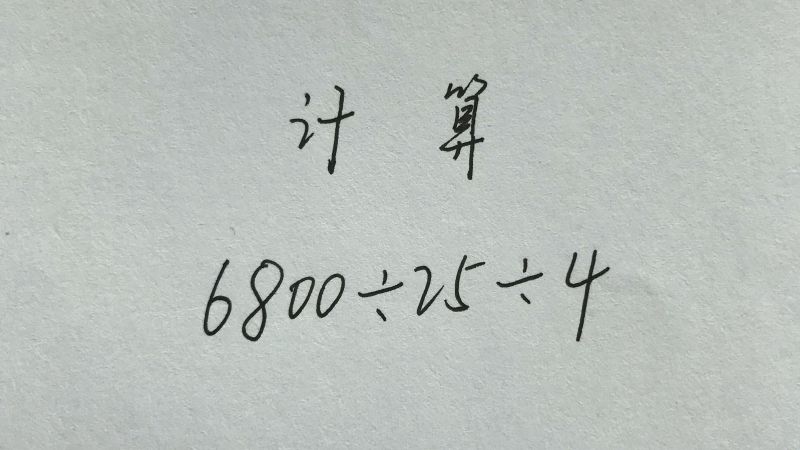 计算
6800÷25÷4